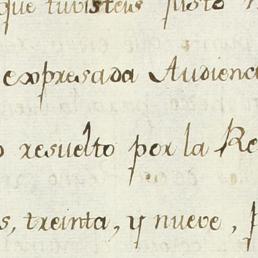 que tuvisteis justo
expresada Audienc
o resuelto por la Re
s, treinta, y nueve,